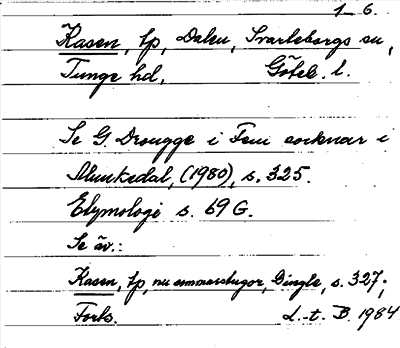 1_ 6.
Kasen, tp, Dalen, Svarteborgs sn,
Tunge hd, Göteb. l.
Se G. Drougge i Fem socknar i
Munkedal, (1980), s. 325.
Etymologi s. 69 G.
Se äv.:
Kasen, tp, nu sommarstugor, Dingle, s. 327.;
Forts. L.-t. B. 1984